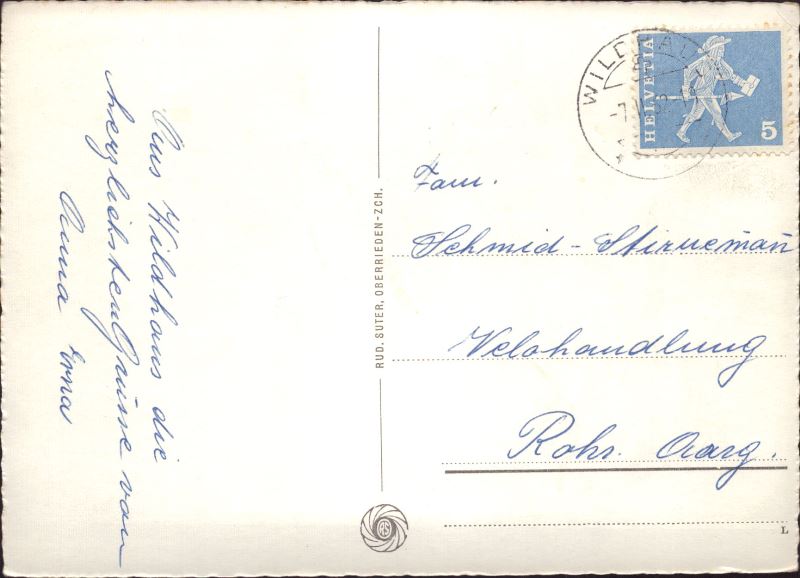 Aus Wildhaus die
herzlichsten Grüsse von
Anna Erna
RUD. SUTER, OBERRIEDEN-ZCH.
WILDHAUS
HELVETIA
5
Fam.
Schmid-Stirneman̄
Velohandlung
Rohr. Aarg.
L